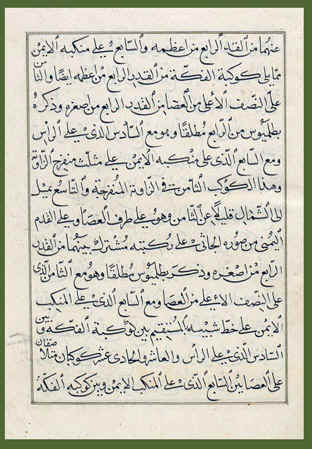 عنهما من القدر الرابع من اعظمه والسابع على منكبه الايمن
مما يلى كوكبة الفكة من القدر الرابع من اعظمه ايضا والثامن
على النصف الاعلى من العصا من القدر الرابع من اصغره وذكره
بطلميوس من الرابع مطلقا وهو مع السادس الذى على الراس
ومع السابع الذى على منكبه الايمن على مثلث منفرج الزاوية
وهذا الكوكب الثامن فى الزاوية المنفرجة والتاسع يميل
الى الشمال قليلا عن الثامن وهو على طرف العصا وعلى القدم
اليمنى من صورة الجاثى على ركبته مشترك بينهما من القدر
الرابع من اصغره وذكره بطلميوس مطلقا وهو مع الثامن الذى
على النصف الاعلى من العصا ومع السابع الذى على المنكب
الايمن على خط شبيه المستقيم بين كوكبة الفكة وبين
السادس الذى على الراس والعاشر والحادى عشر كوكبان متلاصقان
على العصا بين السابع الذى على المنكب الايمن وبين كوكبة الفكة